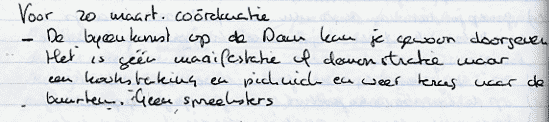 Voor 20 maart. coördinatie
- De byeenkomst op de Dam kan je gewoon doorgeven
Het is géén manifestatie of demonstratie maar
een kookstaking en picknick en weer terug naar de
buurten. Geen spreeksters